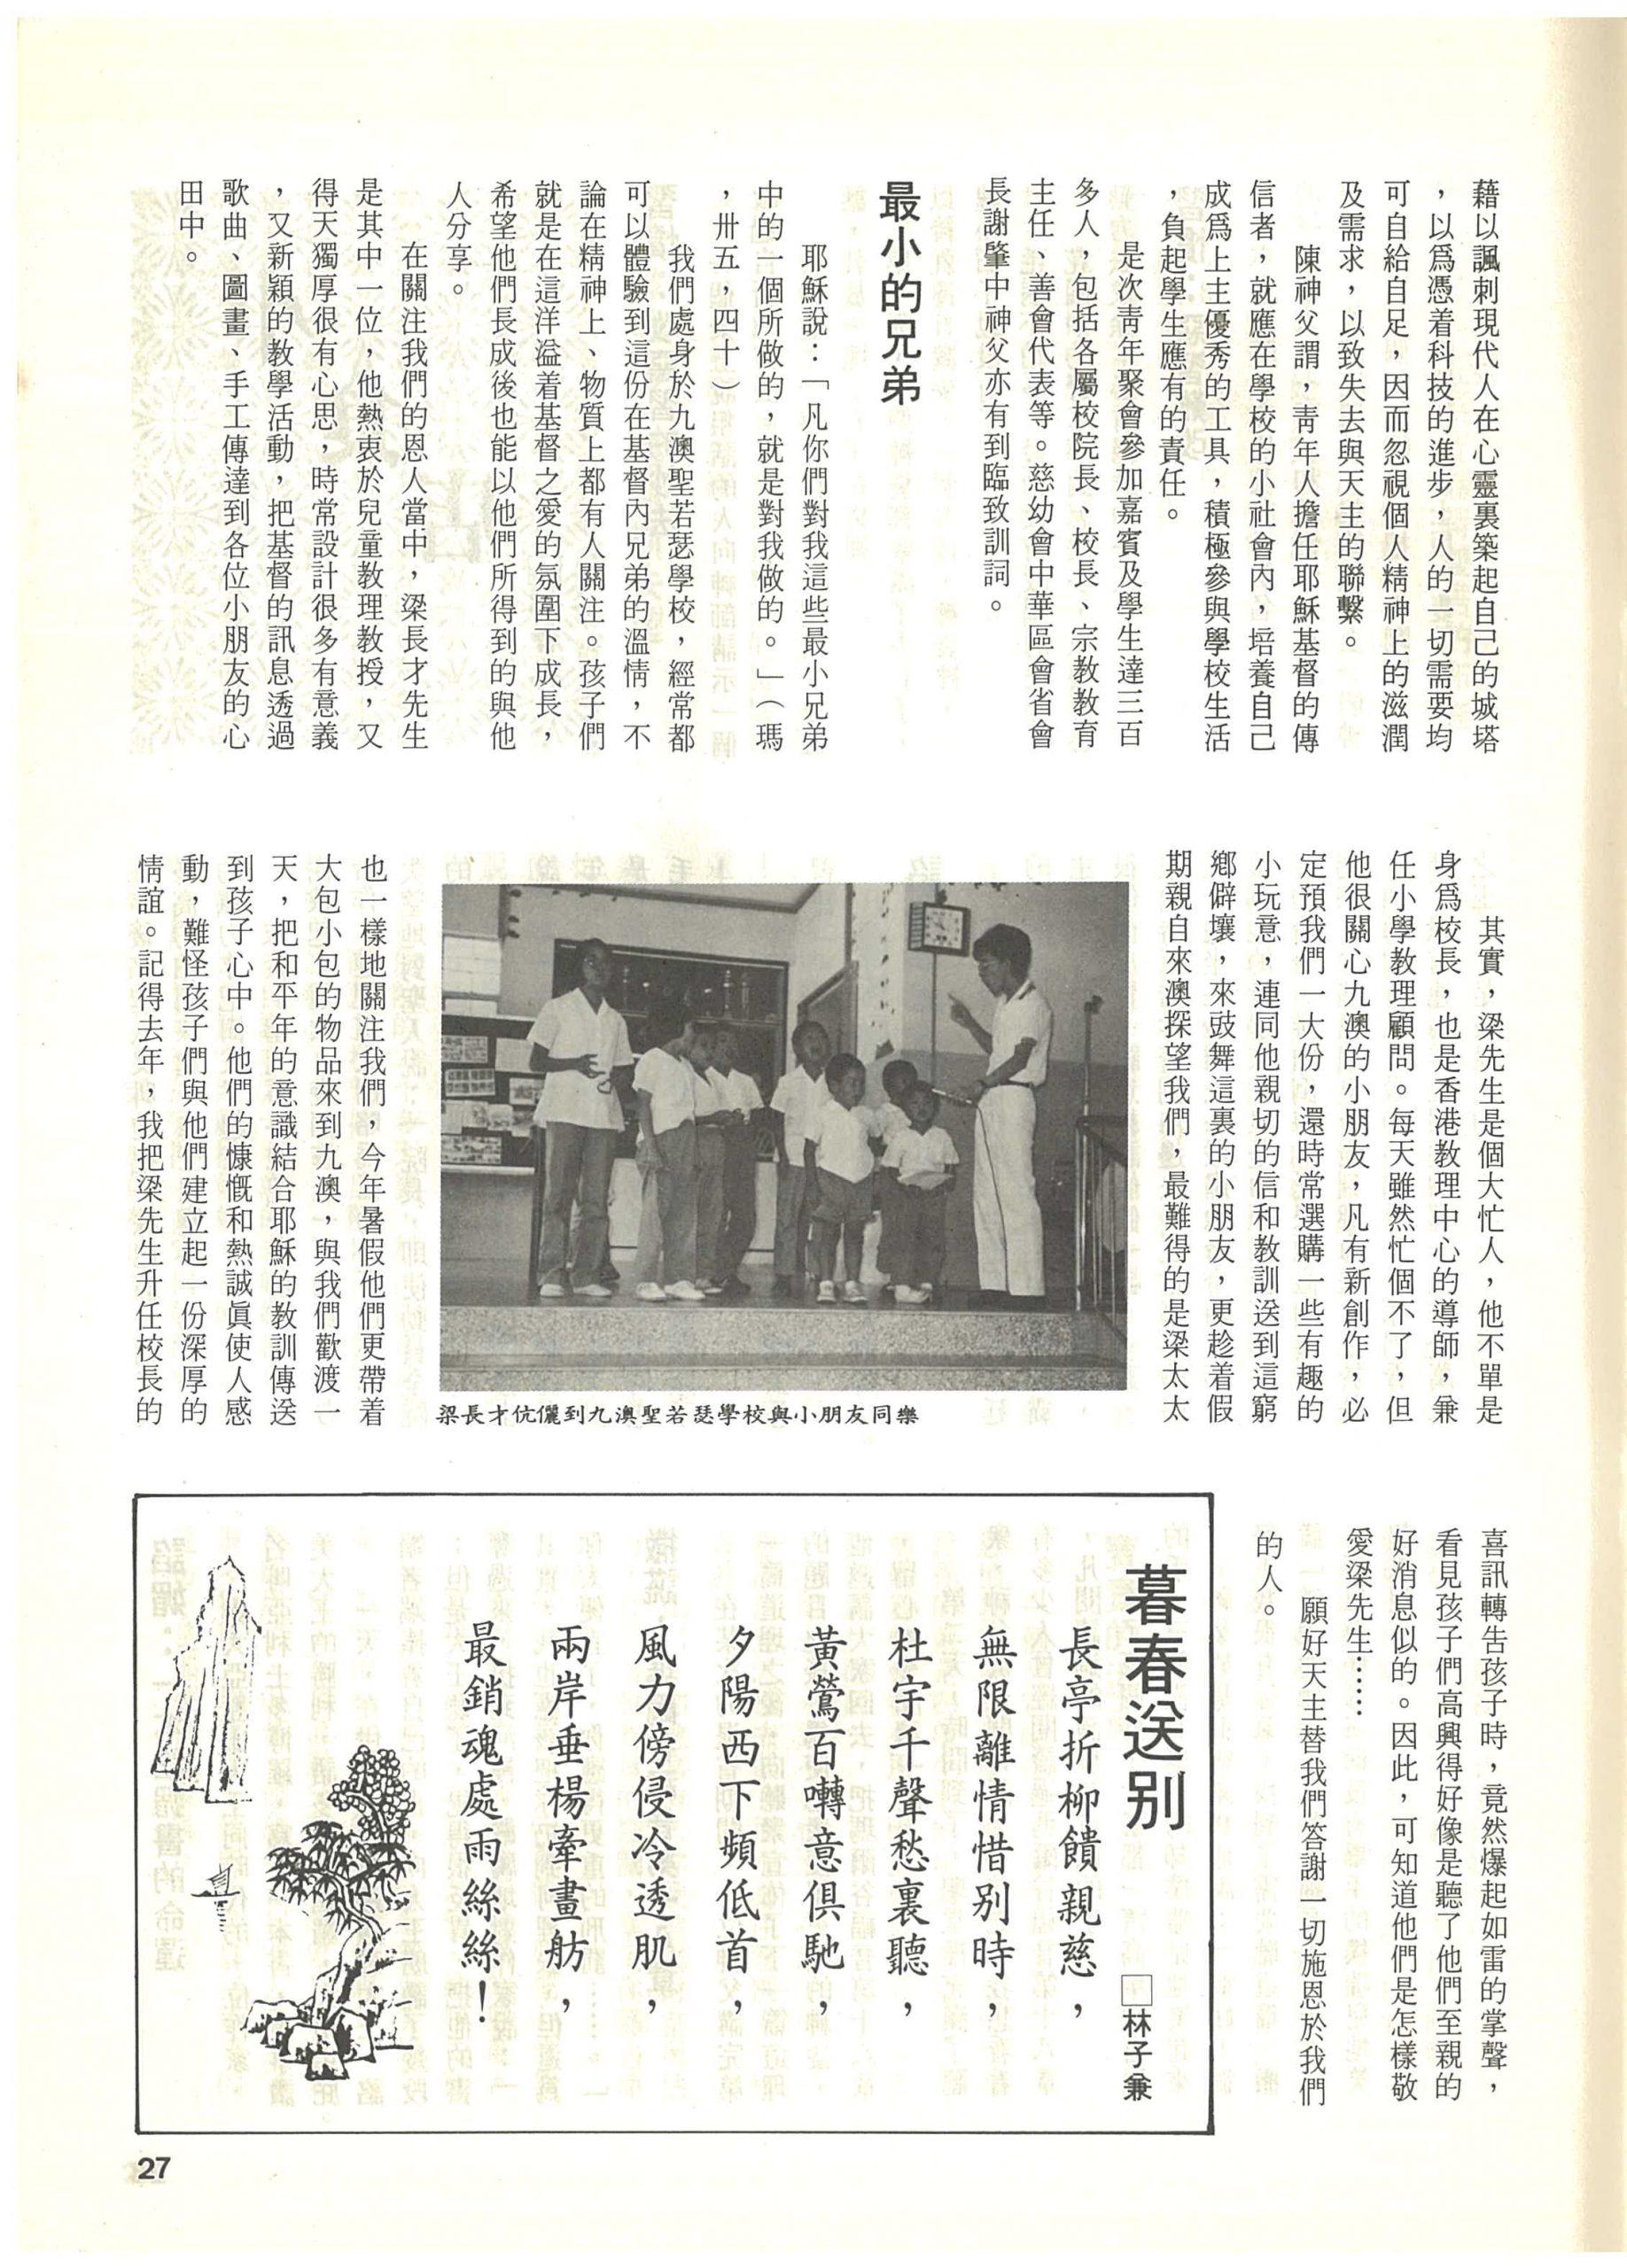 藉以諷刺現代人在心靈裏築起自己的城塔
，以爲憑着科技的進步，人的一切需要均
可自給自足，因而忽視個人精神上的滋潤
及需求，以致失去與天主的聯繫。
陳神父謂，靑年人擔任耶穌基督的傳
信者，就應在學校的小社會內，培養自己
成爲上主優秀的工具，積極參與學校生活
，負起學生應有的責任。
是次靑年聚會參加嘉賓及學生達三百
多人，包括各屬校院長、校長、宗教教育
主任、善會代表等。慈幼會中華區會省會
長謝肇中神父亦有到臨致訓詞。
最小的兄弟
耶穌說：「凡你們對我這些最小兄弟
中的一個所做的，就是對我做的。」（瑪
，卅五，四十）
我們處身於九澳聖若瑟學校，經常都
可以體驗到這份在基督內兄弟的溫情，不
論在精神上、物質上都有人關注。孩子們
就是在這洋溢着基督之愛的氛圍下成長，
希望他們長成後也能以他們所得到的與他
人分享。
在關注我們的恩人當中，梁長才先生
是其中一位，他熱衷於兒童教理教授，又
得天獨厚很有心思，時常設計很多有意義
，又新穎的教學活動，把基督的訊息透過
歌曲、圖畫、手工傳達到各位小朋友的心
田中。
其實，梁先生是個大忙人，他不單是
身爲校長，也是香港教理中心的導師，兼
任小學教理顧問。每天雖然忙個不了，但
他很關心九澳的小朋友，凡有新創作，必
定預我們一大份，還時常選購一些有趣的
小玩意，連同他親切的信和教訓送到這窮
鄉僻壤，來鼓舞這裏的小朋友，更趁着假
期親自來澳探望我們，最難得的是梁太太
梁長才伉儷到九澳聖若瑟學校與小朋友同樂
也一樣地關注我們，今年暑假他們更帶着
大包小包的物品來到九澳，與我們歡渡一
天，把和平年的意識結合耶穌的教訓傳送
到孩子心中。他們的慷慨和熱誠眞使人感
動，難怪孩子們與他們建立起一份深厚的
情誼。記得去年，我把梁先生升任校長的
喜訊轉告孩子時，竟然爆起如雷的掌聲，
看見孩子們高興得好像是聽了他們至親的
好消息似的。因此，可知道他們是怎樣敬
愛梁先生……
願好天主替我們答謝一切施恩於我們
的人。
暮春送别
□林子兼
長亭折柳饋親慈，
無限離情惜别時，
杜宇千聲愁裏聽，
黃鶯百囀意俱馳，
夕陽西下頻低首，
風力傍侵冷透肌，
兩岸垂楊牽畫舫，
最銷魂處雨絲絲！
27